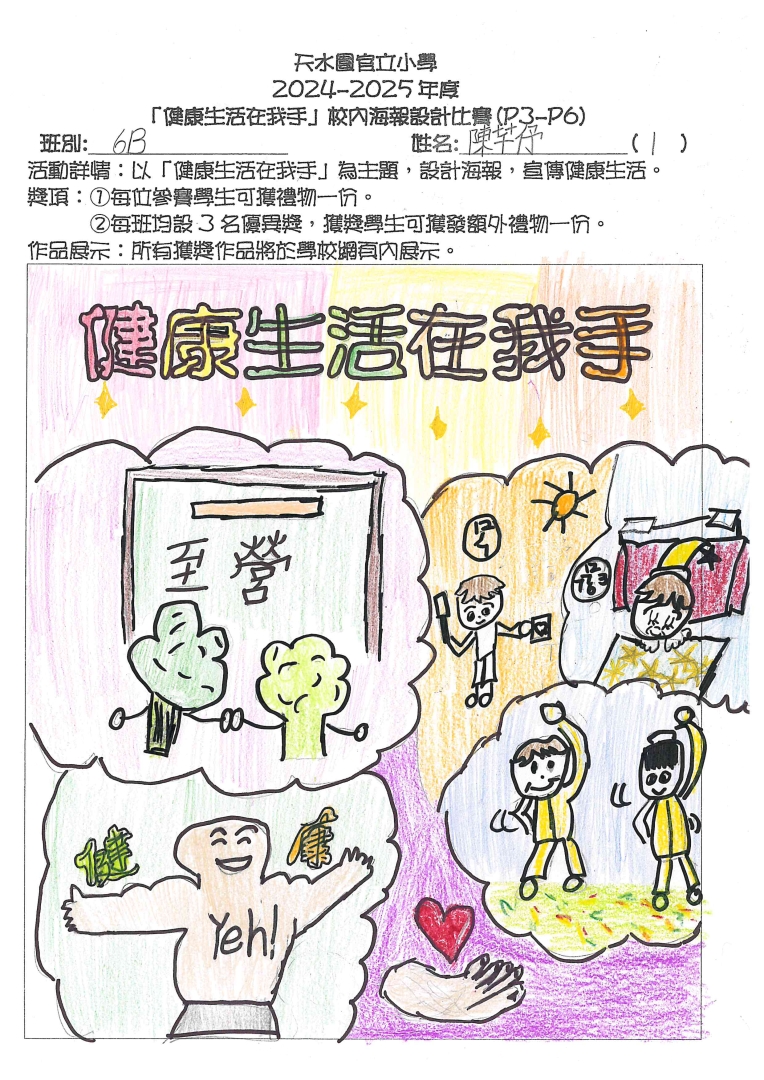 天水圍官立小學
2024-2025年度
「健康生活在我手」校內海報設計比賽(P3-P6)
班別: 6B 姓名: 陳芊伃 ( 1 )
活動詳情：以「健康生活在我手」為主題，設計海報，宣傳健康生活。
獎項：①每位參賽學生可獲禮物一份。
②每班均設 3 名優異獎，獲獎學生可獲發額外禮物一份。
作品展示：所有獲獎作品將於學校網頁內展示。
健康生活在我手
至營
健 康
Yeh!